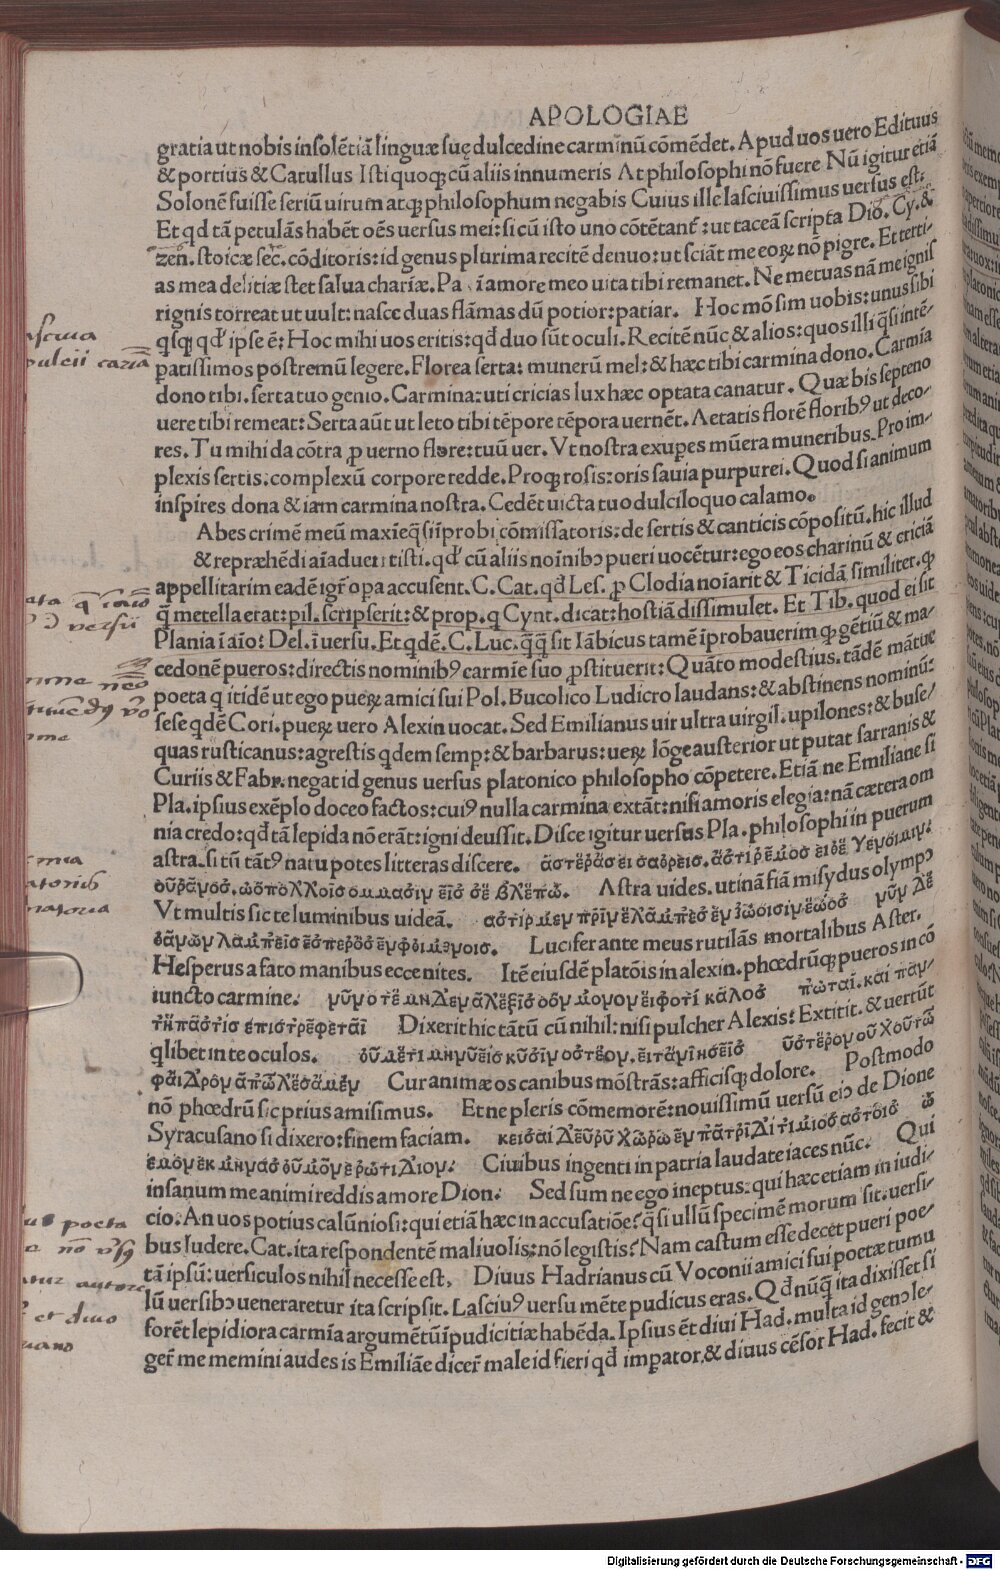 APOLOGIAE
gratia ut nobis insolētiā linguæ suę dulcedine carminū cōmēdet. Apud uos uero Edituus
& portius & Catullus Isti quoq; cū aliis innumeris At philosophi nō fuere Nū igitur etiā
Solonē fuisse seriū uirum atq; philosophum negabis Cuius ille lasciuissimus uersus est:
Et qđ tā petulās habēt oēs uersus mei: si cū isto uno cōtētant̄: ut taceā scripta Dio. Cy. &
zen. stoicæ sec̄. cōditoris: id genus plurima recitē denuo: ut sciāt me eoꝝ nō pigre. Et terti⸗
as mea delitiæ stet salua chariæ. Pa īamore meo uita tibi remanet. Ne metuas nā me ignis
rignis torreat ut uult: nasce duas flāmas dū potior: patiar. Hoc mō sim uobis: unus sibi
qsꝗ qđ ipse ē: Hoc mihi uos eritis: qđ duo sūt oculi. Recitē nūc & alios: quos illi ꝗ̄si intē⸗
ꝑatissimos postremū legere. Florea serta: munerū mel: & hæc tibi carmina dono. Carmia
dono tibi. serta tuo genio. Carmina: uti cricias lux hæc optata canatur. Quæ bis septeno
uere tibi remeat: Serta aūt ut leto tibi tēpore tēpora uernēt. Aetatis florē floribꝰ ut deco⸗
res. Tu mihi da cōtra ꝑ uerno flore: tuū uer. Vt nostra exupes mūera muneribus. Pro im⸗
plexis sertis: complexū corpore redde. Proq; rosis: oris sauia purpurei. Quod si animum
inspires dona & iam carmina nostra. Cedēt uicta tuo dulciloquo calamo.
Abes crimē meū maxīeq̄ sī īprobi cōmissatoris: de sertis & canticis cōpositū. hic illud
& repræhēdi aīaduertisti. qđ cū aliis noīnibꝰ pueri uocētur: ego eos charinū & criciā
appellitarim eadē igr̄ opa accusent. C. Cat. qđ Les. ꝓ Clodia noīarit & Ticidā similiter. qꝫ
q̄ metella erat: pil. scripserit: & prop. q Cynt. dicat: hostiā dissimulet. Et Tib. quod ei sit
Plania īaīo: Del. ī uersu. Et qdē. C. Luc. q̄q̄ sit Iābicus tamē īprobauerim qꝫ gētiū & ma⸗
cedonē pueros: directis nominibꝰ carmīe suo ꝓstituerit: Quāto modestius. tādē mātue
poeta q itidē ut ego pueꝝ amici sui Pol. Bucolico Ludicro laudans: & abstinens nominū:
sese qdē Cori. pueꝝ uero Alexin uocat. Sed Emilianus uir ultra uirgil. upilones: & buse⸗
quas rusticanus: agrestis qdem semp: & barbarus: ueꝝ lōge austerior ut putat sarranis &
Curiis & Fabr. negat id genus uersus platonico philosopho cōpetere. Etiā ne Emiliane si
Pla. ipsius exēplo doceo factos: cuiꝰ nulla carmina extāt: nisi amoris elegia: nā cætera om
nia credo: qđ tā lepida nō erāt: igni deussit. Disce igitur uersus Pla. philosophi in puerum
astra. si tū tātꝰ natu potes litteras discere. ἀστέρας εισαθρεισ. ἀστιρ εμοσ ειθε γενοιμιν:
οὐρανοσ. ωσ πολλοισ ομμασιν εισ σε βλεπω. Astra uides. utinā fiā mi sydus olympꝰ
Vt multis sic te luminibus uideā. αστιρ μεν πριν ελαμπεσ εν ζωοισιν εωοσ νυν δε
θανων λαμπεισ εσπεροσ εν φθιμενοισ. Lucifer ante meus rutilās mortalibus Aster.
Hesperus a fato manibus ecce nites. Itē eiusdē platōis in alexin. phœdrūq; pueros in cō
iuncto carmine. νυν οτε μηδεν αλεξισ οσον μονον ειφ οτι καλοσ πωται. και παν⸗
τηπαστισ επιστρεφεται Dixerit hic tātū cū nihil: nisi pulcher Alexis: Extitit. & uertūt
qlibet in te oculos. θυμε τι μηνυεισ κυσιν οστεον. ειτα νινσεισ υστερον ου χουτω
φαιδρον απωλεσαμεν Cur animæ os canibus mōstrās: afficisq; dolore. Postmodo
nō phœdrū sic prius amisimus. Et ne pleris cōmemorē: nouissimū uersū eiꝰ de Dione
Syracusano si dixero: finem faciam. κεισαι δευρυχωρω εν πατριδι τιμιοσ αστοισ ω
εμον εκμηνασ θυμον ερωτι διον: Ciuibus ingenti in patria laudate iaces nūc. Qui
insanum me animi reddis amore Dion: Sed sum ne ego ineptus: qui hæc etiam in iudi⸗
cio. An uos potius calūniosi: qui etiā hæc in accusatiōe? q̄si ullū specimē morum sit. uersi⸗
bus ludere. Cat. ita respondentē maliuolis: nō legistis? Nam castum esse decet pueri poe⸗
tā ipsū: uersiculos nihil necesse est. Diuus Hadrianus cū Voconii amici sui poetæ tumu
lū uersibꝰ ueneraretur ita scripsit. Lasciuꝰ uersu mēte pudicus eras. Qđ nūq̄ ita dixisset si
forēt lepidiora carmīa argumētū īpudicitiæ habēda. Ipsius ēt diui Had. multa id genꝰ le⸗
ger̄ me memini audes is Emiliāe dicer̄ male id fieri qđ imꝑator. & diuus cēsor Had. fecit &
Digitalisierung gefördert durch die Deutsche Forschungsgemeinschaft - DFG